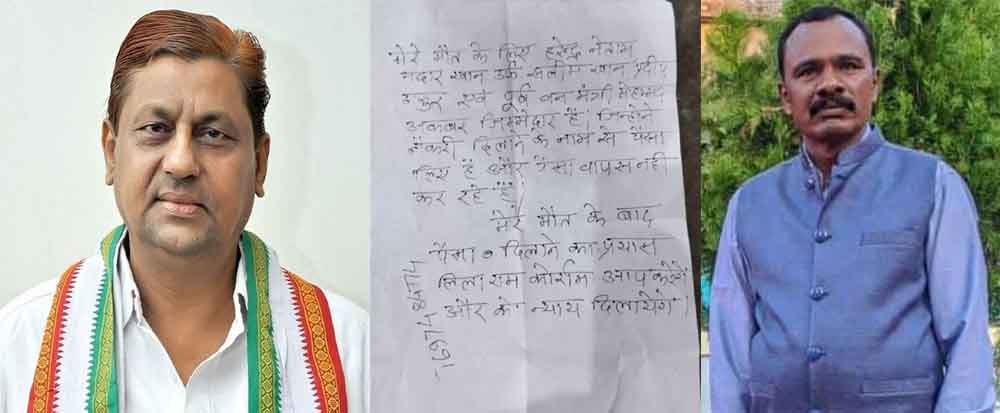 मेरे मौत के लिए हरेन्द्र नेताम
मदार खान उर्फ सलीम खान प्रदीप
ठाकुर एवं पूर्व वन मंत्री मोहम्मद
अकबर जिम्मेदार हैं। जिन्होंने
नौकरी दिलाने के नाम से पैसा
लिए हैं और पैसा वापस नहीं
कर रहे हैं।
मेरे मौत के बाद
पैसा दिलाने का प्रयास
राम कोर्राम आप करेंगे
और न्याय दिलायेंगे।